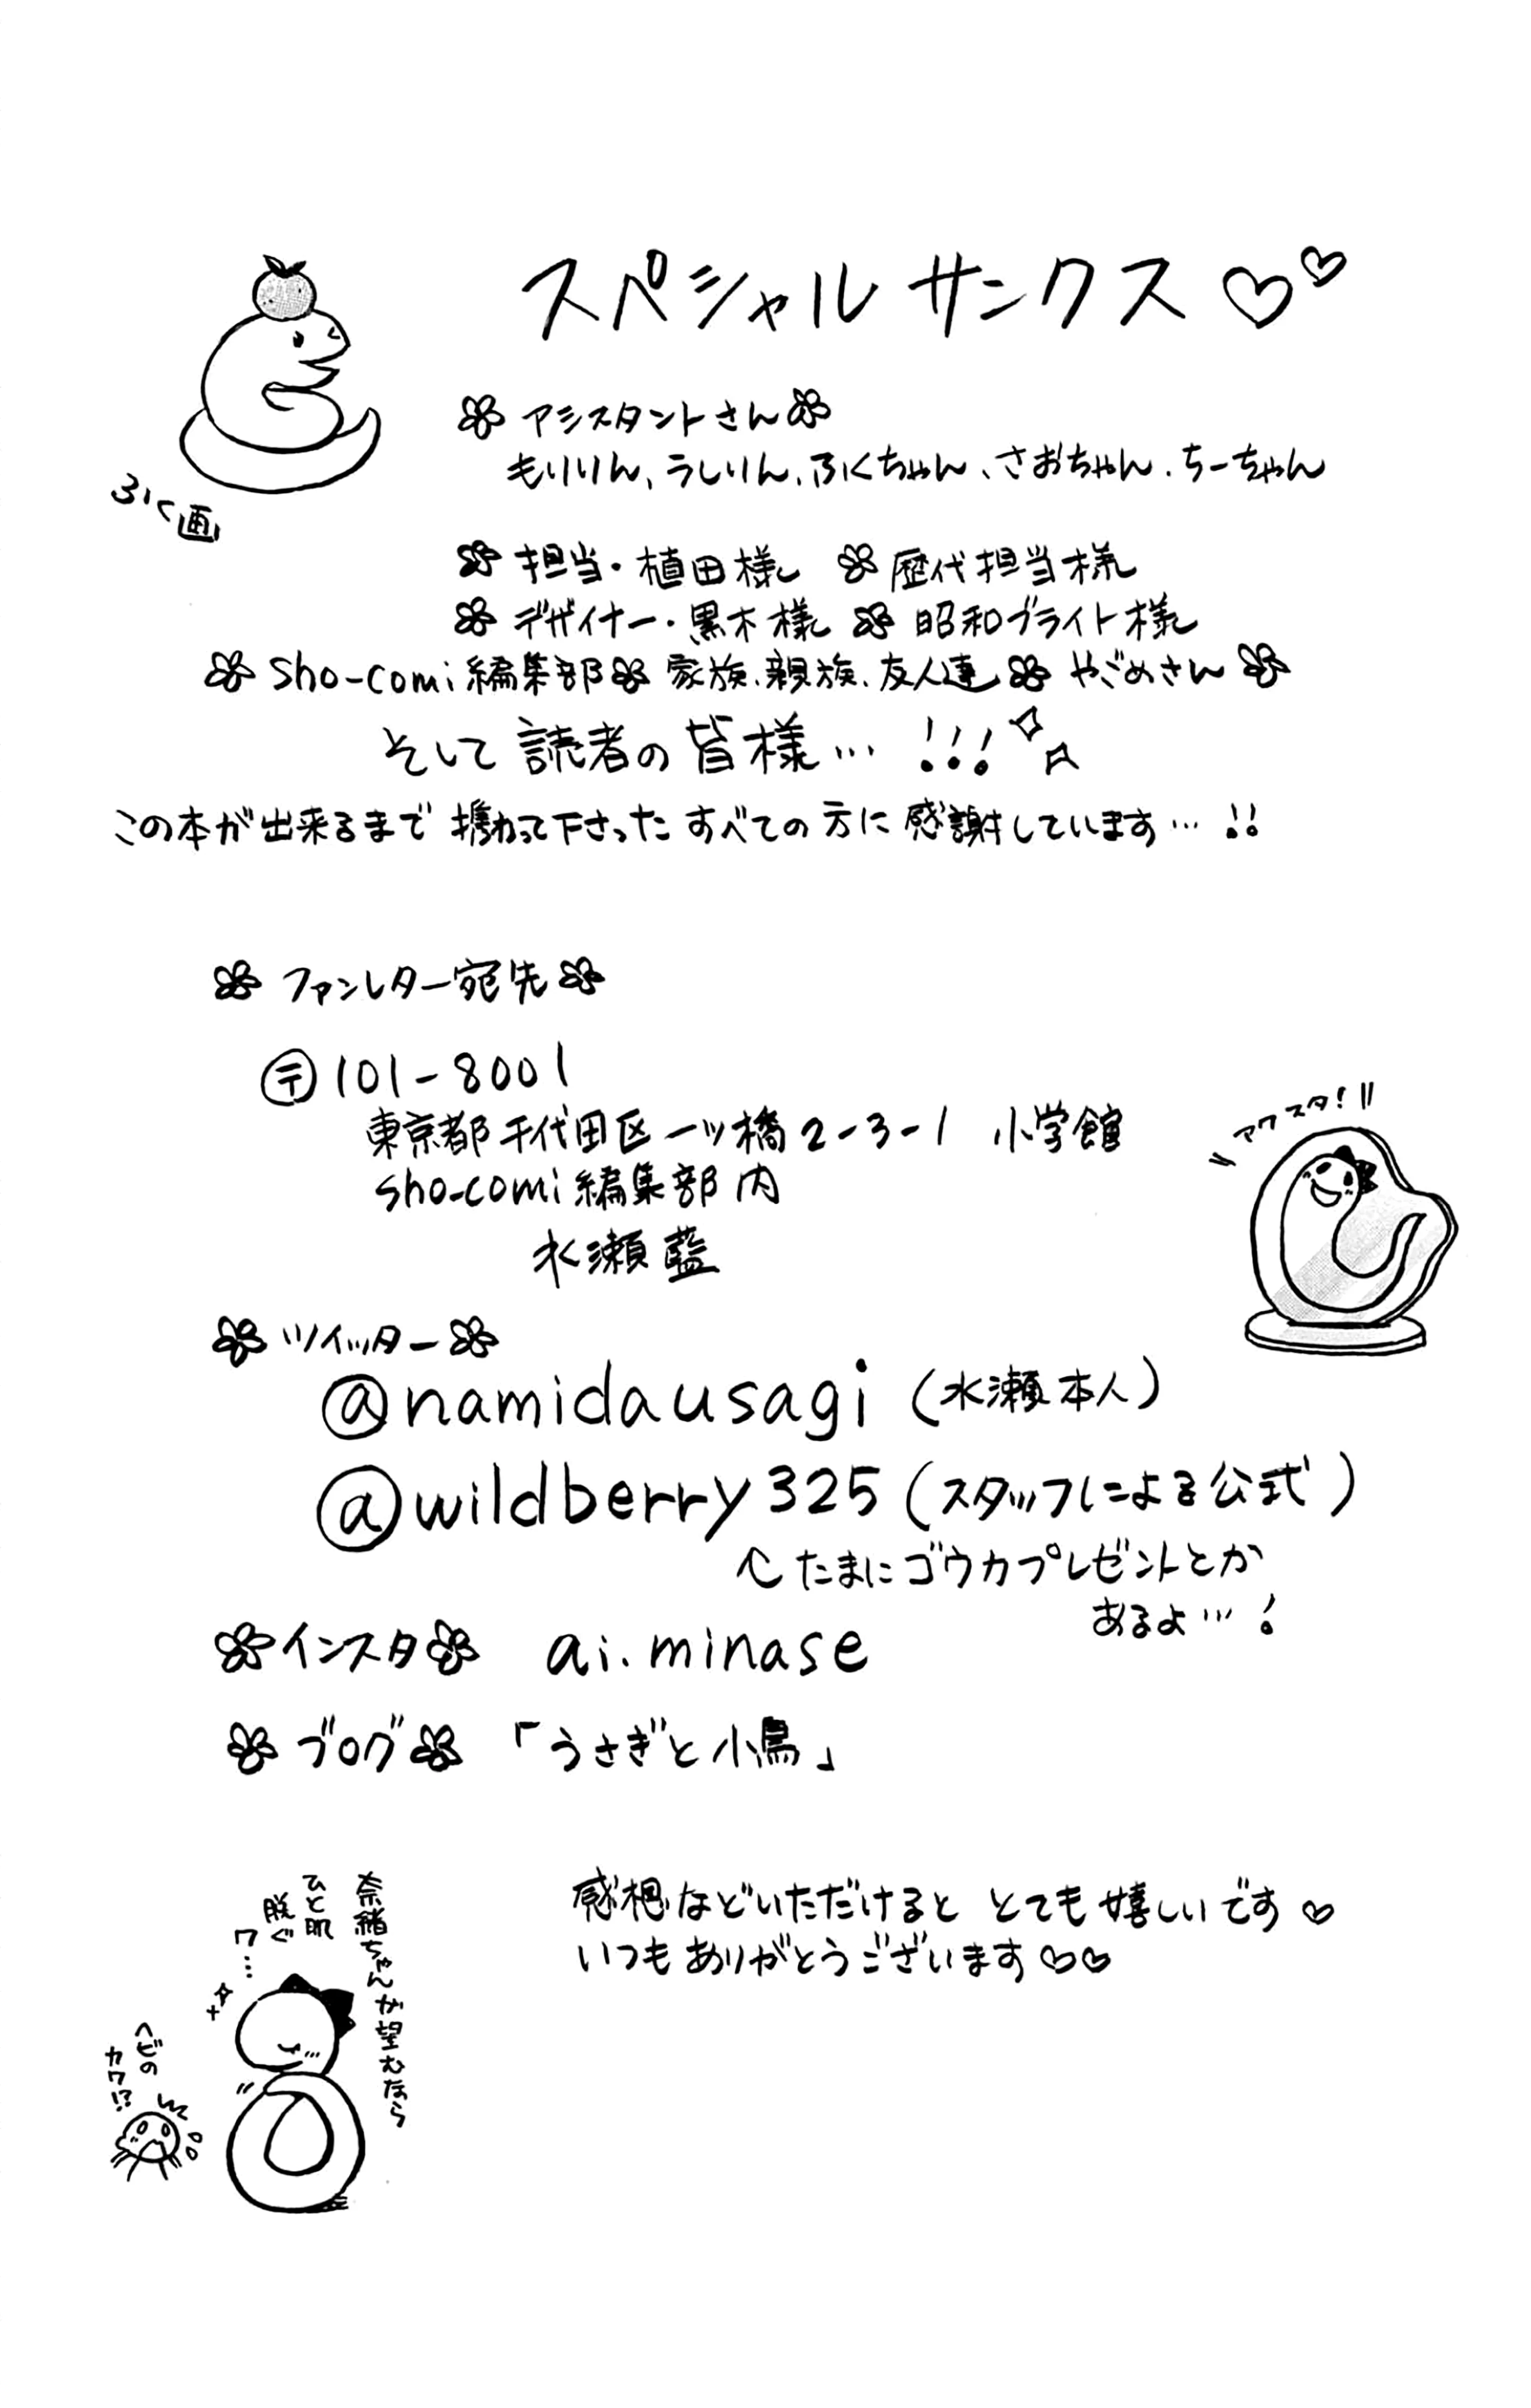 スペシャル サンクス♡♡
ふく画
✿ アシスタントさん ✿
もりりん、うしりん、ふくちゃん、さおちゃん、ちーちゃん
✿ 担当・植田様 ✿ 歴代担当様
✿ デザイナー・黒木様 ✿ 昭和ブライト様
✿ Sho-comi編集部 ✿ 家族、親族、友人達 ✿ やごめさん ✿
そして 読者の 皆様… !!!
この本が出来るまで 携わって下さった すべての 方に 感謝しています… !!
✿ ファンレター宛先 ✿
〒101-8001
東京都千代田区一ツ橋2-3-1 小学館
sho-comi編集部内
水瀬 藍
アクスタ!
✿ ツイッター ✿
@namidausagi (水瀬本人)
@wildberry325 (スタッフによる公式)
たまにゴウカプレゼントとか
あるよ…!
✿インスタ✿ ai.minase
✿ ブログ ✿ 「うさぎと小鳥」
感想などいただけると とても 嬉しいです♡
いつもありがとうございます♡♡
奈緒ちゃんが望むなら
ひと肌
脱ぐ
ワ…
ヘビの
カワ!?